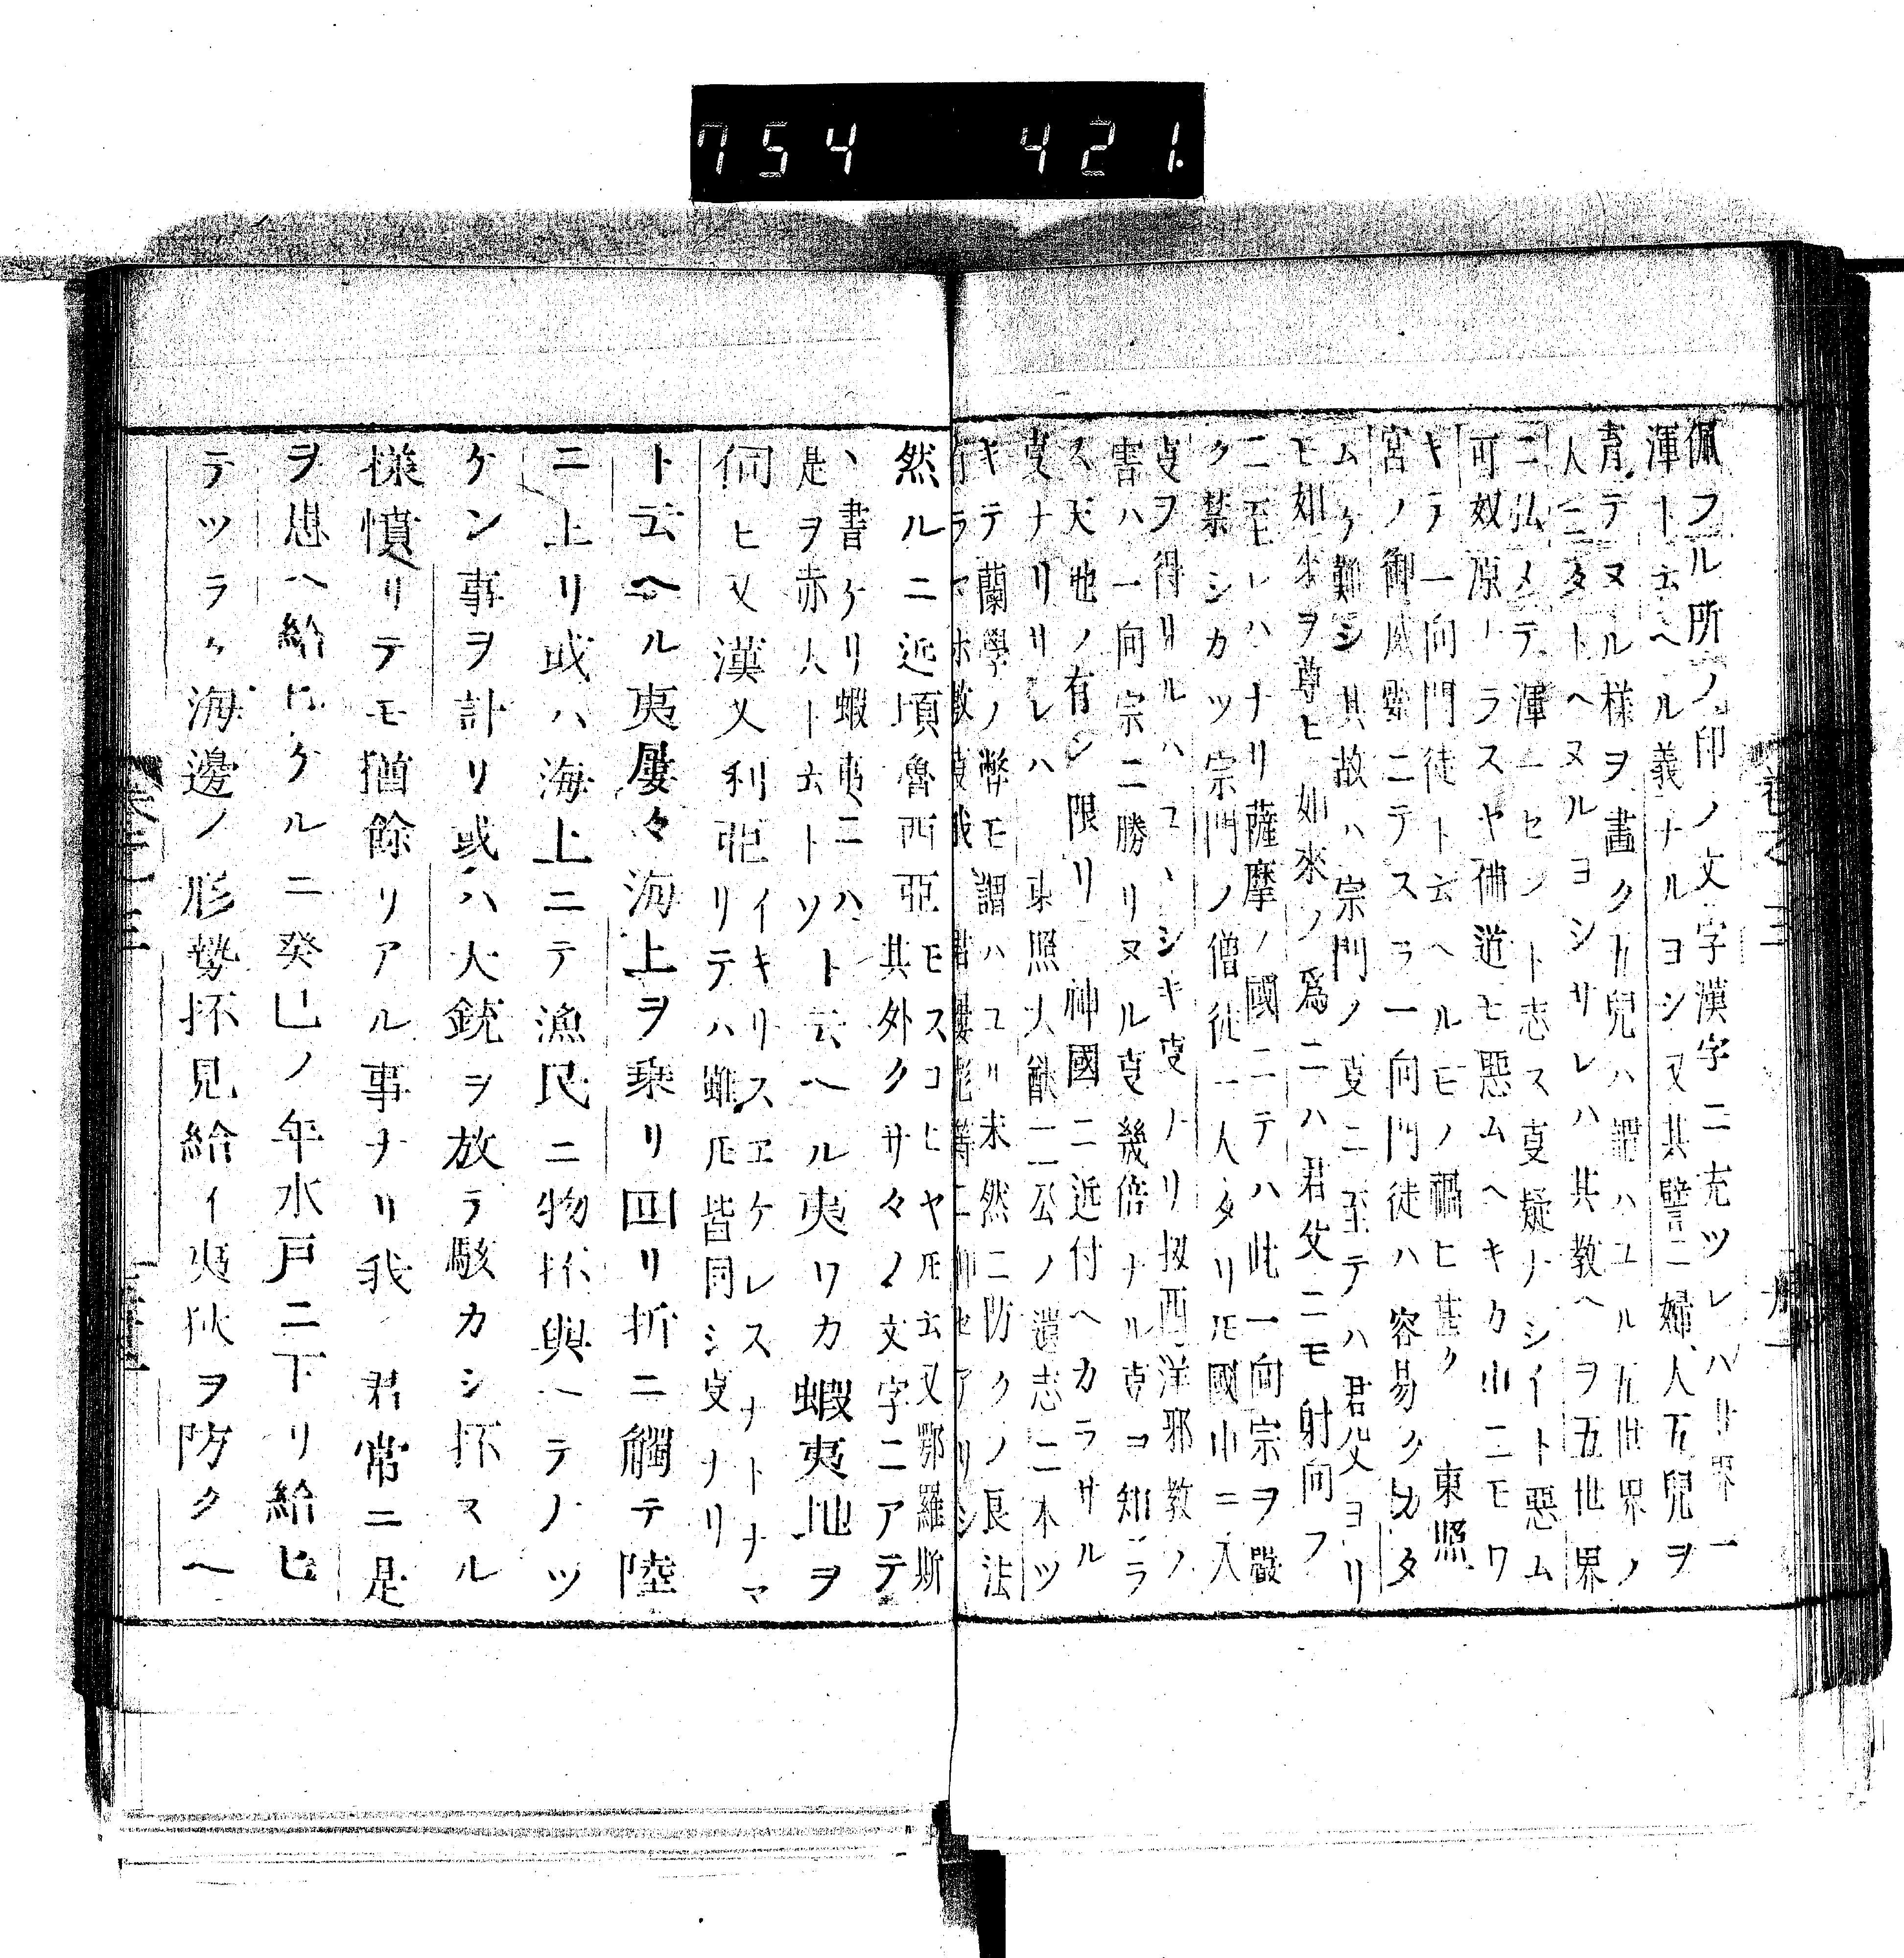 754 421.
佩フル所ノ印ノ文字漢字ニ充ツレハ廿界一
渾ト云ヘル義ナルヨシ又其譬ニ婦人五兒ヲ
育テヌル様ヲ畫ク五兒ハ謂ハユル五世界ノ
人ニタトヘヌルヨシサレハ其教ヘヲ五世界
ニ弘メテ渾一セント志ス叓疑ナシイト惡ム
可奴原ナラスヤ佛道モ惡ムヘキカ中ニモワ
キテ一向門徒ト云ヘルモノ禍ヒ甚ク 東照
宮ノ御威靈ニテスラ一向門徒ハ容易クカタ
ムケ難シ其故ハ宗門ノ叓ニ至テハ君父ヨリ
モ如來ヲ尊ヒ如來ノ爲ニハ君父ニモ射向フ
ニ至レハナリ薩摩ノ國ニテハ此一向宗ヲ嚴
ク禁シカツ宗門ノ僧徒一人タリ𪜈國中ニ入
叓ヲ得サルハユヽシキ叓ナリ扨西洋邪教ノ
害ハ一向宗ニ勝リヌル叓幾倍ナル叓ヲ知ラ
ス天地ノ有ン限リ 神國ニ近付ヘカラサル
叓ナリサレハ 東照大猷二公ノ遺志ニ本ツ
キテ蘭學ノ弊モ謂ハユル未然ニ防クノ良法
然ルニ近頃魯西亞モスコヒヤ𪜈云又鄂羅斯
其外クサ々ノ文字ニアテ
ヽ書ケリ蝦夷ニハ
是ヲ赤人ト云トソト云ヘル夷ワカ蝦夷地ヲ
伺ヒ又漢又利亞イキリスヱケレスナトトナマ
リテハ雖𪜈皆同シ叓ナリ
ト云ヘル夷屢々海上ヲ乘リ回リ折ニ觸テ陸
ニ上リ或ハ海上ニテ漁民ニ物抔與ヘテナツ
ケン事ヲ計リ或ハ大銃ヲ放テ駭カシ抔スル
様憤リテモ猶餘リアル事ナリ我 君常ニ是
ヲ患ヘ給ヒケルニ癸巳ノ年水戸ニ下リ給ヒ
テツラク海邊ノ形勢抔見給イ夷狄ヲ防クヘ